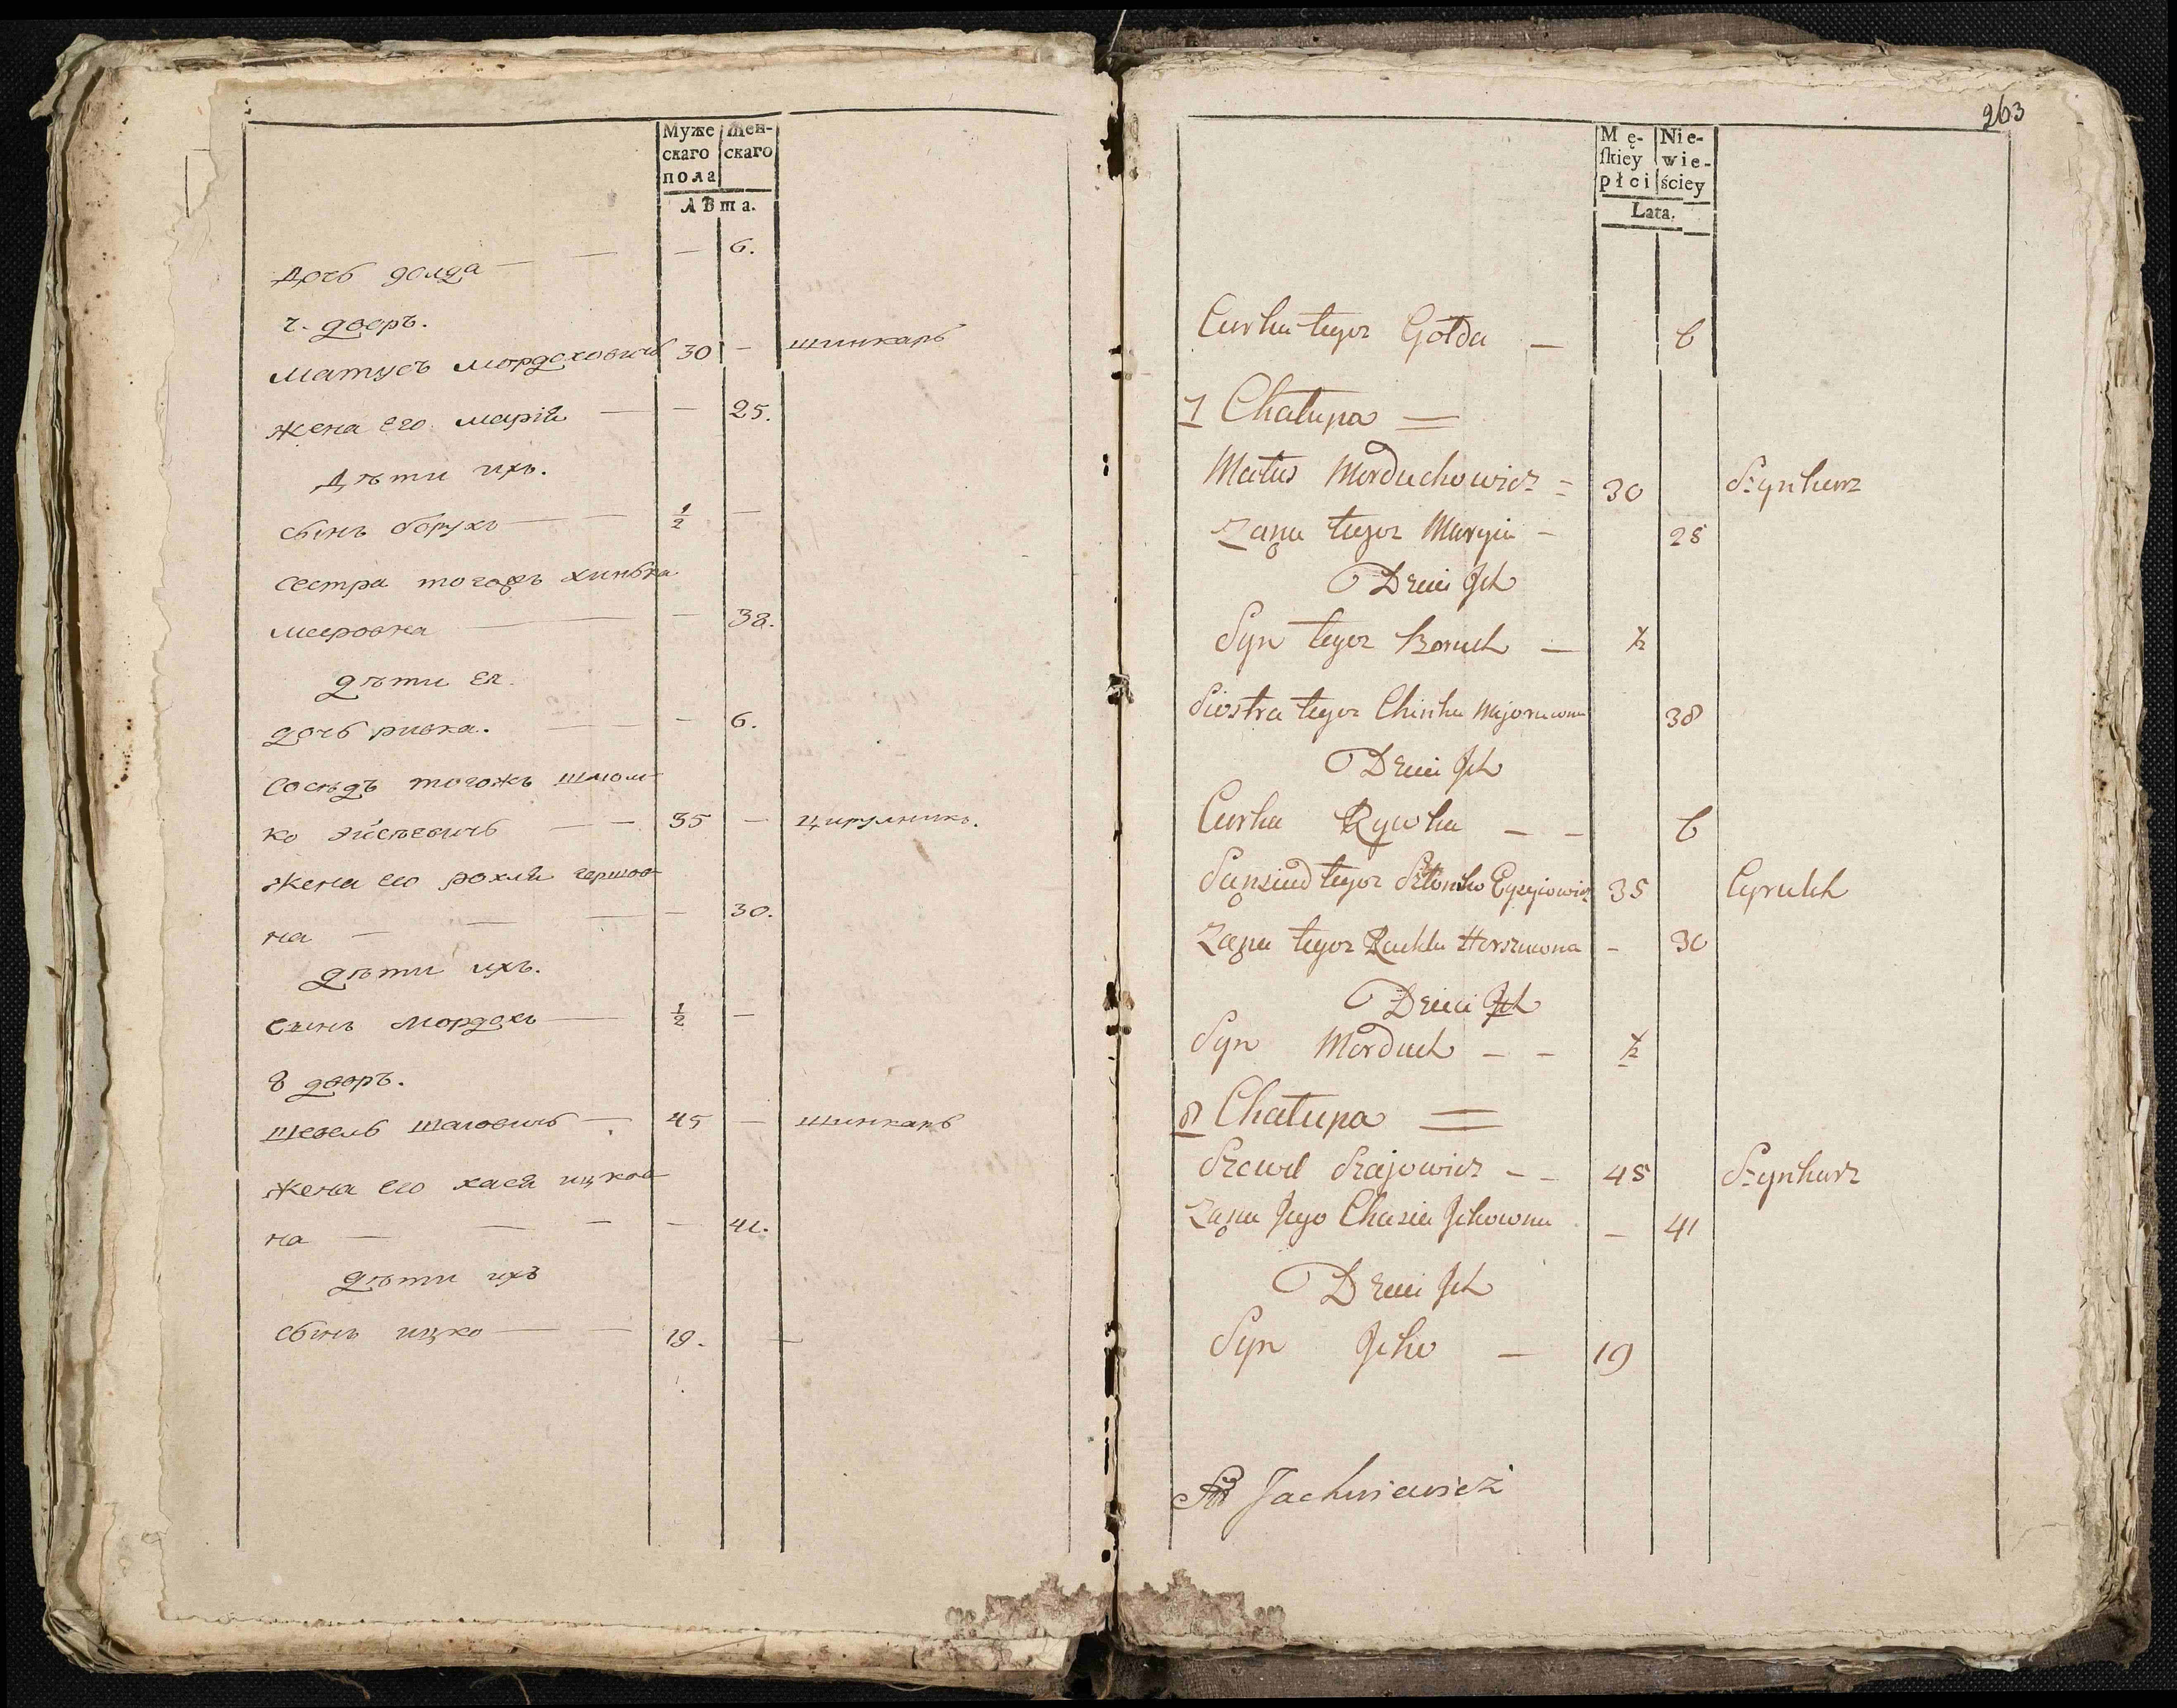 Муже Жен-
скаго скаго
пола
Лѣта.
дочь голда — — — 6.
7. дворъ.
Матусъ мордоховичь 30 — шинкарь
жена его марія — — 25.
Дѣти ихъ.
сынъ борухъ — — 1/2 —
сестра тогожъ хинька
мееровна — — — 38.
дѣти ея.
дочь ривка. — — 6.
сосѣдъ тогожъ шлом-
ко эйсѣевичь — — 35 — цирулникъ.
жена его рохля гершов-
на — — — — 30.
дѣти ихъ.
сынъ мордохъ — 1/2 —
8 дворъ.
шевель шаговичь — 45 — шинкарь
жена его хася ицков-
на — — — — 41.
дѣти ихъ
сынъ ицко — — 19. —
263
Mę- Nie-
skiey wie-
płci ściey
Lata.
Curka tegoz Gołda — 6
7 Chałupa =
Matus Morduchowicz = 30 Szynkarz
Zona tegoz Maryia — 25
Dzieci Ich
Syn tegoz Boruch — 1/2
Siostra tegoz Chinka Mejorowna 38
Dzieci Ich
Curka Rywka — — 6
Sąnsiad tegoz Szlomko Eyzyiowicz 35 Cyrulik
Zona tegoz Rachla Herszowna — 30
Dzieci Ich
Syn Morduch — — 1/2
8 Chałupa =
Szewel Szajowicz — — 45 Szynkarz
Zona Jego Chasia Ickowna — 41
Dzieci Ich
Syn Icko — 19
Jachniewicz